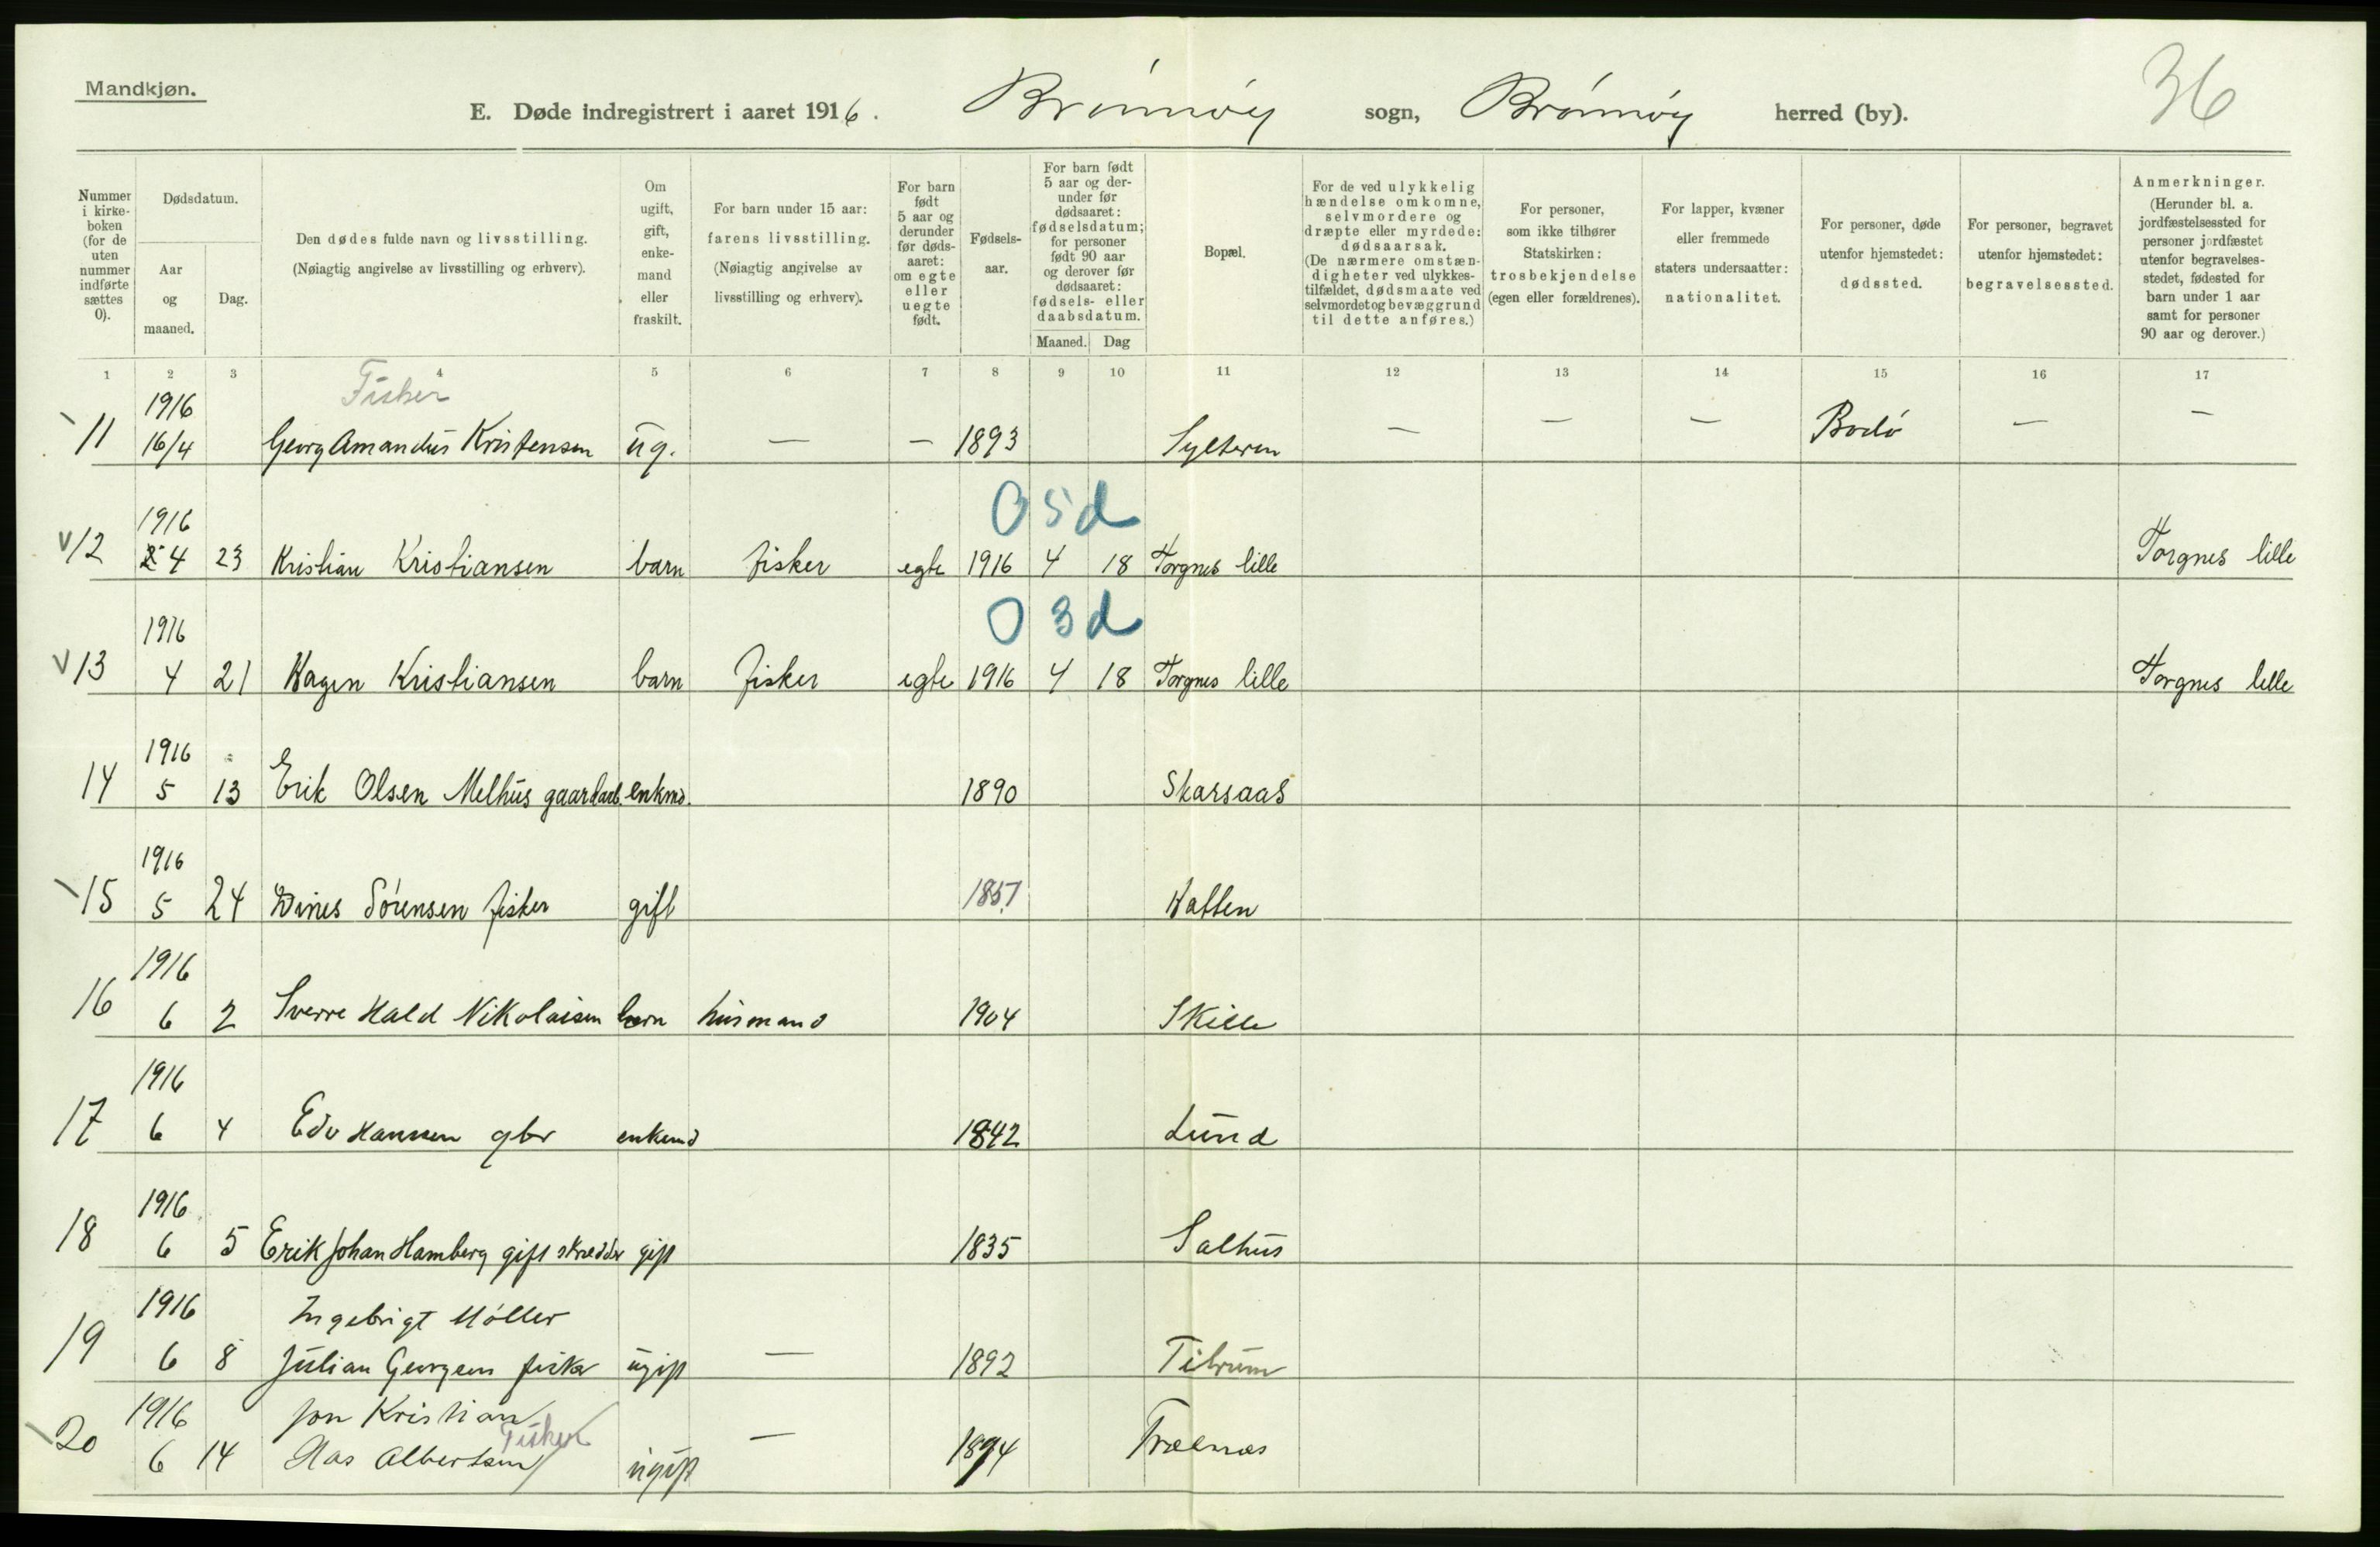 Mandkjøn.
E. Døde indregistrert i aaret 1916. Brønnøy sogn, Brønnøy herred (by).
36
Nummer i kirkeboken (for de uten nummer indførte sættes 0).
Dødsdatum.
Aar og maaned.
Dag.
Den dødes fulde navn og livsstilling.
(Nøiagtig angivelse av livsstilling og erhverv).
Om ugift, gift, enkemand eller fraskilt.
For barn under 15 aar: farens livsstilling.
(Nøiagtig angivelse av livsstilling og erhverv).
For barn født 5 aar og derunder før dødsaaret: om egte eller uegte født.
Fødselsaar.
For barn født 5 aar og derunder før dødsaaret: fødselsdatum; for personer født 90 aar og derover før dødsaaret: fødsels- eller daabsdatum.
Maaned. Dag
Bopæl.
For de ved ulykkelig hændelse omkomne, selvmordere og dræpte eller myrdede: dødsaarsak.
(De nærmere omstændigheter ved ulykkestilfældet, dødsmaate ved selvmordet og bevæggrund til dette anføres.)
For personer, som ikke tilhører Statskirken: trosbekjendelse (egen eller forældrenes).
For lapper, kvæner eller fremmede staters undersaatter: nationalitet.
For personer, døde utenfor hjemstedet: dødssted.
For personer, begravet utenfor hjemstedet: begravelsessted.
Anmerkninger.
(Herunder bl. a. jordfæstelsessted for personer jordfæstet utenfor begravelsesstedet, fødested for barn under 1 aar samt for personer 90 aar og derover.)
1 2 3 4 5 6 7 8 9 10 11 12 13 14 15 16 17
1916 Fisker
11 16/4 Georg Amandus Kristensen ug. — — 1893 Sylteren — — — Bodø — —
1916 0 5 d
12 4 23 Kristian Kristiansen barn fisker egte 1916 4 18 Torgnes lille Torgnes lille
1916 0 3 d
13 4 21 Hagen Kristiansen barn fisker egte 1916 4 18 Torgnes lille Torgnes lille
1916
14 5 13 Erik Olsen Melhus gaardarb. enkmd. 1890 Skarsaas
1916
15 5 24 Dines Sørensen fisker gift 1857 Hatten
1916
16 6 2 Sverre Hald Nikolaisen barn husmand 1904 Skille
1916
17 6 4 Edv Hansen gbr enkemd 1842 Lund
1916
18 6 5 Erik Johan Hamberg gift skrædder gift 1835 Salhus
1916 Ingebrigt Møller
19 6 8 Julian Georgsen fisker ugift — 1892 Tilrum
1916 Jon Kristian
20 6 14 Has Albertsen Fisker ugift — 1894 Trælnæs